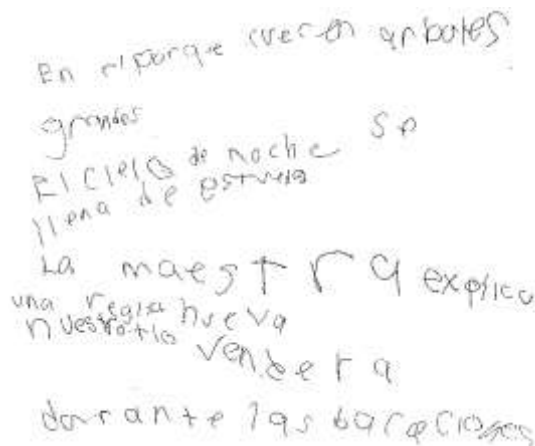 En el parque crecen arboles
grandes
El cielo de noche se
llena de estrella
La maestra explica
una regla nueva
nuestro tio
vendera
durante las bacaciones